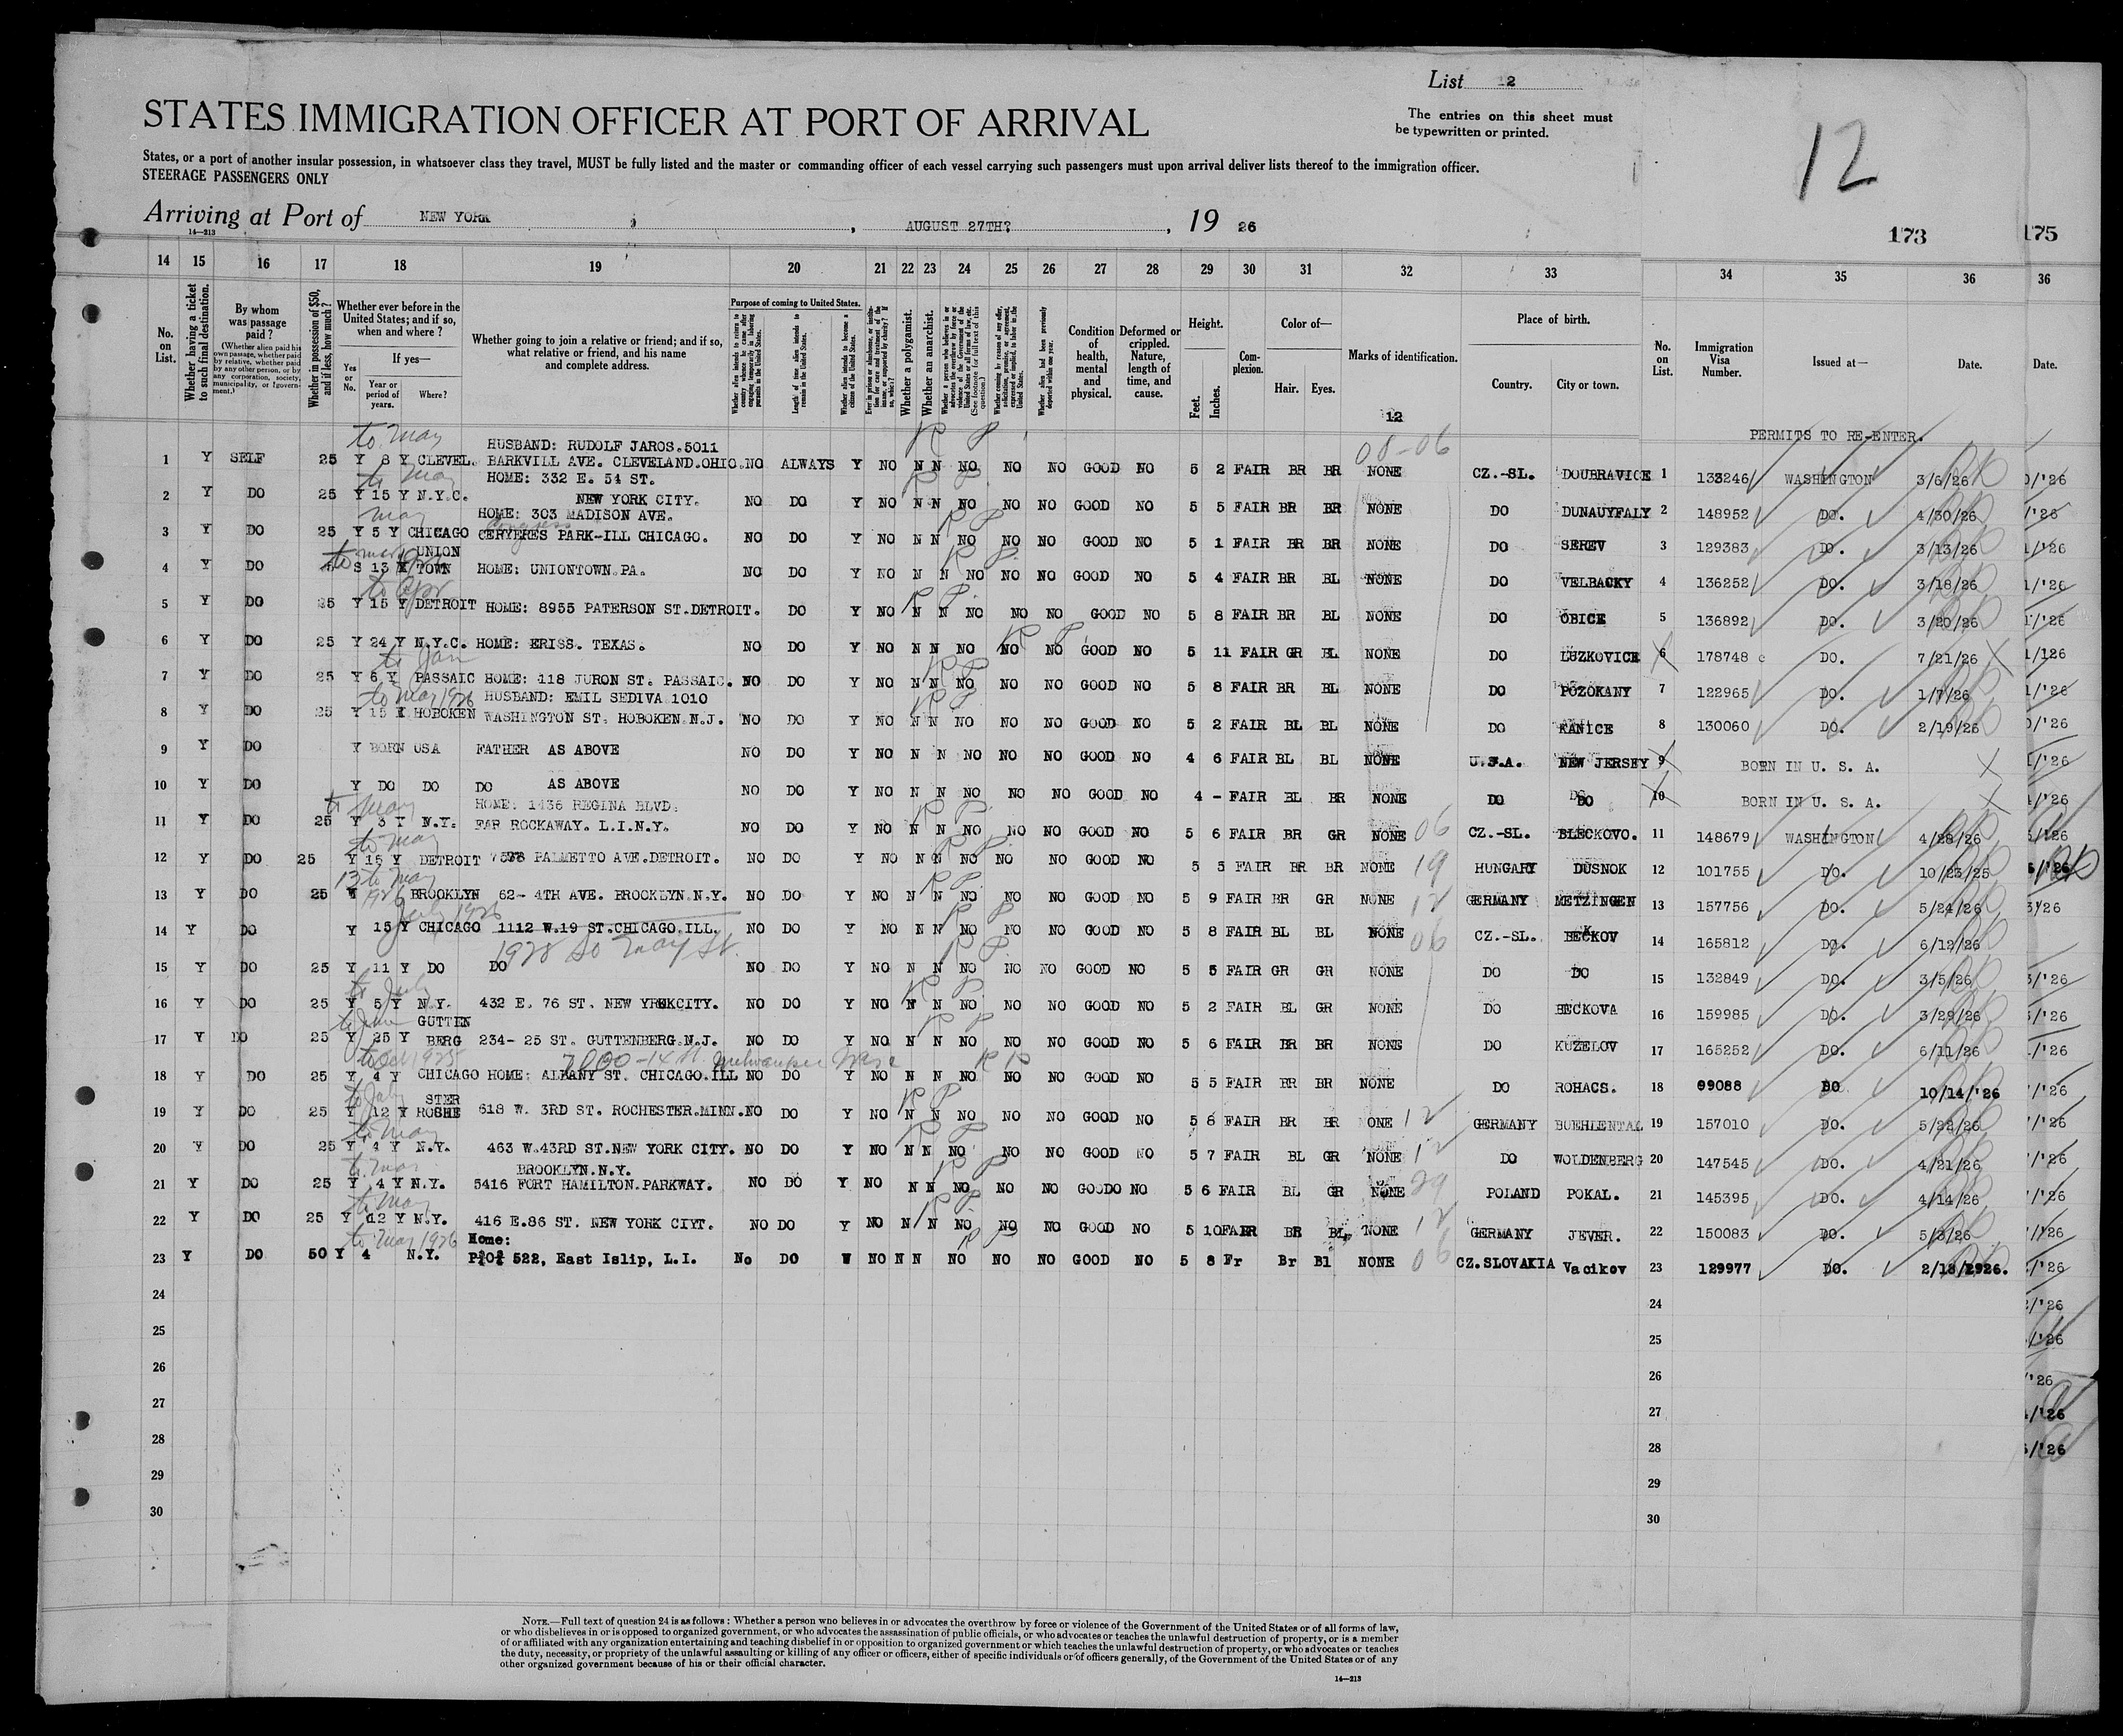 List 12
STATES IMMIGRATION OFFICER AT PORT OF ARRIVAL
The entries on this sheet must
be typewritten or printed.
12
States, or a port of another insular possession, in whatsoever class they travel, MUST be fully listed and the master or commanding officer of each vessel carrying such passengers must upon arrival deliver lists thereof to the immigration officer.
STEERAGE PASSENGERS ONLY
Arriving at Port of NEW YORK, AUGUST 27TH, 19 26
14—213
173 175
14 15 16 17 18 19 20 21 22 23 24 25 26 27 28 29 30 31 32 33 34 35 36 36
No. on List.
Whether having a ticket to such final destination.
By whom was passage paid?
(Whether alien paid his own passage, whether paid by relative, whether paid by any other person, or by any corporation, society, municipality, or government.)
Whether in possession of $50, and if less, how much?
Whether ever before in the United States; and if so, when and where?
Yes or No.
If yes—
Year or period of years.
Where?
Whether going to join a relative or friend; and if so, what relative or friend, and his name and complete address.
Purpose of coming to United States.
Length of time alien intends to remain in the United States.
Whether a polygamist.
Whether an anarchist.
Condition of health, mental and physical.
Deformed or crippled. Nature, length of time, and cause.
Height.
Feet. Inches.
Complexion.
Color of—
Hair. Eyes.
Marks of identification.
12
Place of birth.
Country. City or town.
No. on List.
Immigration Visa Number.
Issued at—
Date. Date.
PERMITS TO RE-ENTER.
to May
HUSBAND: RUDOLF JAROS.5011
08-06
1 Y SELF 25 Y 8 Y CLEVEL. BARKVILL AVE. CLEVELAND.OHIO. NO ALWAYS Y NO N N NO NO NO GOOD NO 5 2 FAIR BR BR NONE CZ.-SL. DOUBRAVICE 1 133246 WASHINGTON 3/6/26
to May
HOME: 332 E. 54 ST.
2 Y DO 25 Y 15 Y N.Y.C. NEW YORK CITY. NO DO Y NO N N NO NO NO GOOD NO 5 5 FAIR BR BR NONE DO DUNAUYFALY 2 148952 DO. 4/30/26
May
HOME: 303 MADISON AVE.
Congress
3 Y DO 25 Y 5 Y CHICAGO CERYERES PARK-ILL CHICAGO. NO DO Y NO N N NO NO NO GOOD NO 5 1 FAIR BR BR NONE DO SEREV 3 129383 DO. 3/13/26
UNION
4 Y DO S 13 TOWN HOME: UNIONTOWN.PA. NO DO Y NO N N NO NO NO GOOD NO 5 4 FAIR BR BL NONE DO VELBACKY 4 136252 DO. 3/18/26
to Apr
5 Y DO 25 Y 15 Y DETROIT HOME: 8955 PATERSON ST.DETROIT. DO Y NO N N NO NO NO GOOD NO 5 8 FAIR BR BL NONE DO OBICE 5 136892 DO. 3/20/26
6 Y DO 25 Y 24 Y N.Y.C. HOME: ERISS. TEXAS. NO DO Y NO N N NO NO NO GOOD NO 5 11 FAIR GR BL NONE DO LUZKOVICE 6 178748 DO. 7/21/26
to Jan
7 Y DO 25 Y 6 Y PASSAIC HOME: 118 JURON ST. PASSAIC. NO DO Y NO N N NO NO NO GOOD NO 5 8 FAIR BR BL NONE DO POZOKANY 7 122965 DO. 1/7/26
to Mar 1926
HUSBAND: EMIL SEDIVA 1010
8 Y DO 25 Y 15 Y HOBOKEN WASHINGTON ST. HOBOKEN.N.J. NO DO Y NO N N NO NO NO GOOD NO 5 2 FAIR BL BL NONE DO KANICE 8 130060 DO. 2/19/26
9 Y DO Y BORN USA FATHER AS ABOVE NO DO Y NO N N NO NO NO GOOD NO 4 6 FAIR BL BL NONE U.S.A. NEW JERSEY 9 BORN IN U. S. A.
10 Y DO Y DO DO DO AS ABOVE NO DO Y NO N N NO NO NO GOOD NO 4 - FAIR BL BR NONE DO DO 10 BORN IN U. S. A.
to May
HOME: 1436 REGINA BLVD.
11 Y DO 25 Y 3 Y N.Y. FAR ROCKAWAY. L.I.N.Y. NO DO Y NO N N NO NO NO GOOD NO 5 6 FAIR BR GR NONE 06 CZ.-SL. BLECKOVO. 11 148679 WASHINGTON 4/28/26
to May
12 Y DO 25 Y 15 Y DETROIT PALMETTO AVE.DETROIT. NO DO Y NO N N NO NO NO GOOD NO 5 5 FAIR BR BR NONE 19 HUNGARY DUSNOK 12 101755 DO. 10/23/25
13 to May
1926
13 Y DO 25 Y BROOKLYN 62- 4TH AVE. BROOKLYN.N.Y. NO DO Y NO N N NO NO NO GOOD NO 5 9 FAIR BR GR NONE 12 GERMANY METZINGEN 13 157756 DO. 5/24/26
July 1926
14 Y DO Y 15 Y CHICAGO 1112 W.19 ST.CHICAGO.ILL. NO DO Y NO N N NO NO NO GOOD NO 5 8 FAIR BL BL NONE 06 CZ.-SL. BECKOV 14 165812 DO. 6/12/26
1928 So May St.
15 Y DO 25 Y 11 Y DO DO NO DO Y NO N N NO NO NO GOOD NO 5 5 FAIR GR GR NONE DO DO 15 132849 DO. 3/5/26
to July
16 Y DO 25 Y 5 Y N.Y. 432 E. 76 ST. NEW YRKCITY. NO DO Y NO N N NO NO NO GOOD NO 5 2 FAIR BL GR NONE DO BECKOVA 16 159985 DO. 3/29/26
to June
GUTTEN
17 Y DO 25 Y 25 Y BERG 234- 25 ST. GUTTENBERG.N.J. NO DO Y NO N N NO NO NO GOOD NO 5 6 FAIR BR BR NONE DO KUZELOV 17 165252 DO. 6/11/26
to Oct 1925
7000-14 St. Milwaukee
18 Y DO 25 Y 4 Y CHICAGO HOME: ALBANY ST. CHICAGO.ILL NO DO Y NO N N NO NO NO GOOD NO 5 5 FAIR BR BR NONE DO ROHACS. 18 99088 DO 10/14/'26
to July
STER
19 Y DO 25 Y 12 Y ROCHE 618 W. 3RD ST. ROCHESTER.MINN. NO DO Y NO N N NO NO NO GOOD NO 5 8 FAIR BR BR ONE 12 GERMANY BUEHLENTAL 19 157010 DO. 5/22/26
to May
20 Y DO 25 Y 4 Y N.Y. 463 W.43RD ST.NEW YORK CITY. NO DO Y NO N N NO NO NO GOOD NO 5 7 FAIR BL GR NONE 12 DO WOLDENBERG 20 147545 DO. 4/21/26
to Mar
BROOKLYN.N.Y.
21 Y DO 25 Y 4 Y N.Y. 5416 FORT HAMILTON.PARKWAY. NO DO Y NO N N NO NO NO GOODO NO 5 6 FAIR BL GR NONE 29 POLAND POKAL. 21 145395 DO. 4/14/26
to May
22 Y DO 25 Y 12 Y N.Y. 416 E.86 ST. NEW YORK CIYT. NO DO Y NO N N NO NO NO GOOD NO 5 10 FAIR BR BL NONE 12 GERMANY JEVER. 22 150083 DO. 5/3/26
to Mar 1926
Home:
23 Y DO 50 Y 4 N.Y. P.O. 522, East Islip, L.I. No DO NO N N NO NO NO GOOD NO 5 8 Fr Br Bl NONE 06 CZ.SLOVAKIA Vacikov 23 129977 DO. 2/18/1926.
24 24
25 25
26 26
27 27
28 28
29 29
30 30
NOTE.—Full text of question 24 is as follows: Whether a person who believes in or advocates the overthrow by force or violence of the Government of the United States or of all forms of law,
or who disbelieves in or is opposed to organized government, or who advocates the assassination of public officials, or who advocates or teaches the unlawful destruction of property, or is a member
of or affiliated with any organization entertaining and teaching disbelief in or opposition to organized government or which teaches the unlawful destruction of property, or who advocates or teaches
the duty, necessity, or propriety of the unlawful assaulting or killing of any officer or officers, either of specific individuals or of officers generally, of the Government of the United States or of any
other organized government because of his or their official character.
14—213